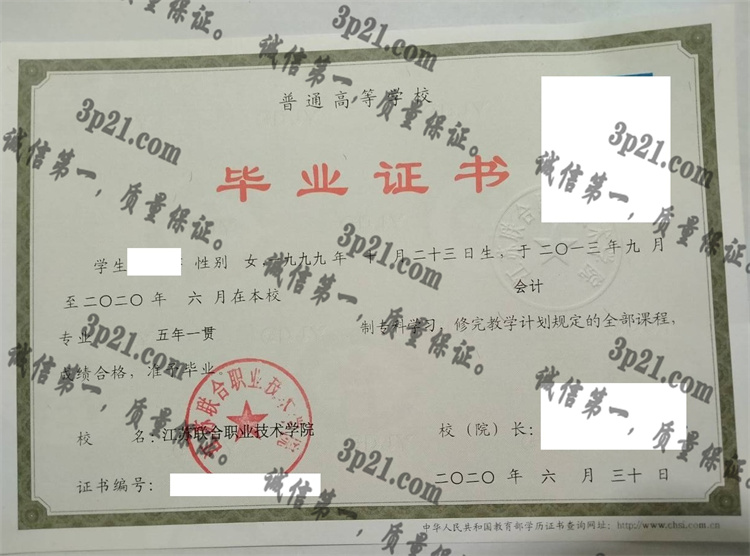 普通高等学校
毕业证书
学生 性别 女 一九九九年 十 月二十三日生，于二〇一三年九月
至二〇二〇年 六 月在本校 会计
专业 五年一贯 制专科学习，修完教学计划规定的全部课程，
成绩合格，准予毕业。
校 名：江苏联合职业技术学院 校（院）长：
江苏联合职业技术学院
证书编号： 二〇二〇 年 六 月 三十 日
中华人民共和国教育部学历证书查询网址：http://www.chsi.com.cn
3p21.com
诚信第一，质量保证。
3p21.com
诚信第一，质量保证。
3p21.com
诚信第一，质量保证。
3p21.com
诚信第一，质量保证。
3p21.com
诚信第一，质量保证。
3p21.com
诚信第一，质量保证。
3p21.com
诚信第一，质量保证。
3p21.com
诚信第一，质量保证。